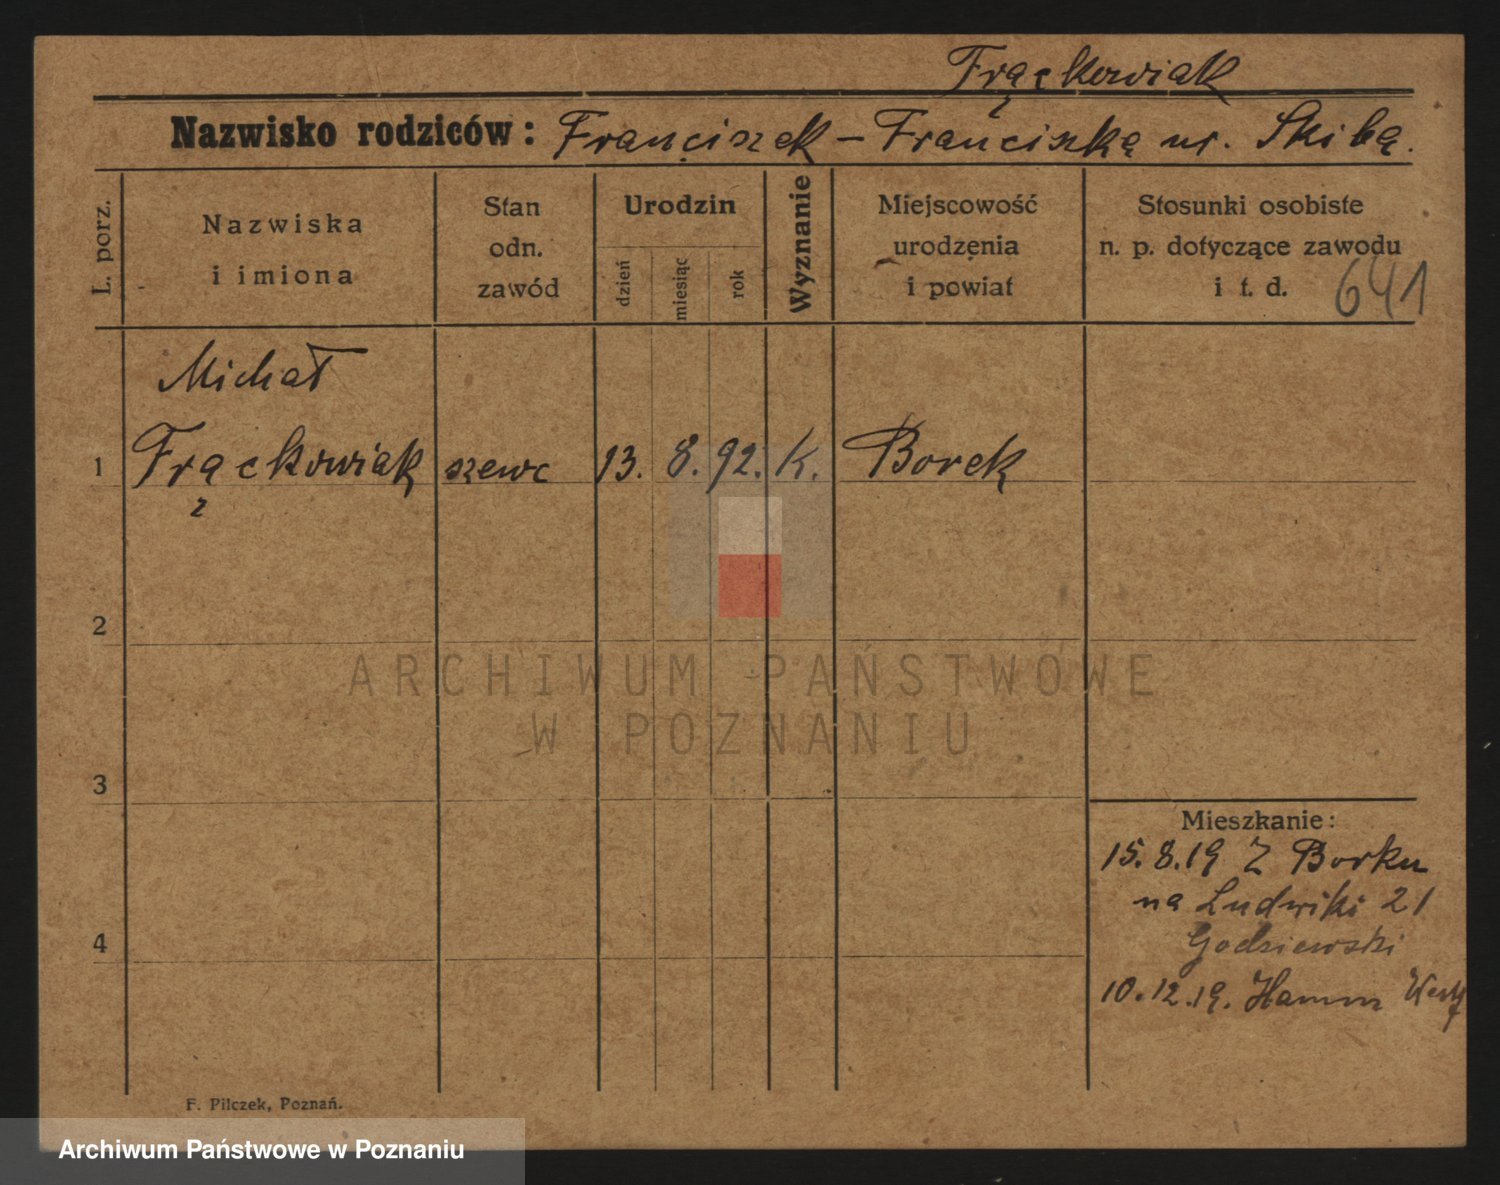 Frąckowiak
Nazwisko rodziców: Franciszek – Franciszka ur. Skibą.
L. porz.
Nazwiska
i imiona
Stan
odn.
zawód
Urodzin
dzień
miesiąc
rok
Wyznanie
Miejscowość
urodzenia
i powiat
Stosunki osobiste
n. p. dotyczące zawodu
i t. d.
641
Michał
1 Frąckowiak szewc 13. 8. 92. K. Borek
2
3
4
Mieszkanie:
15.8.19 Z Borku
na Ludwiki 21
Godziewski
10.12.19. Hamm Westf
F. Pilczek, Poznań.
ARCHIWUM PAŃSTWOWE
W POZNANIU
Archiwum Państwowe w Poznaniu